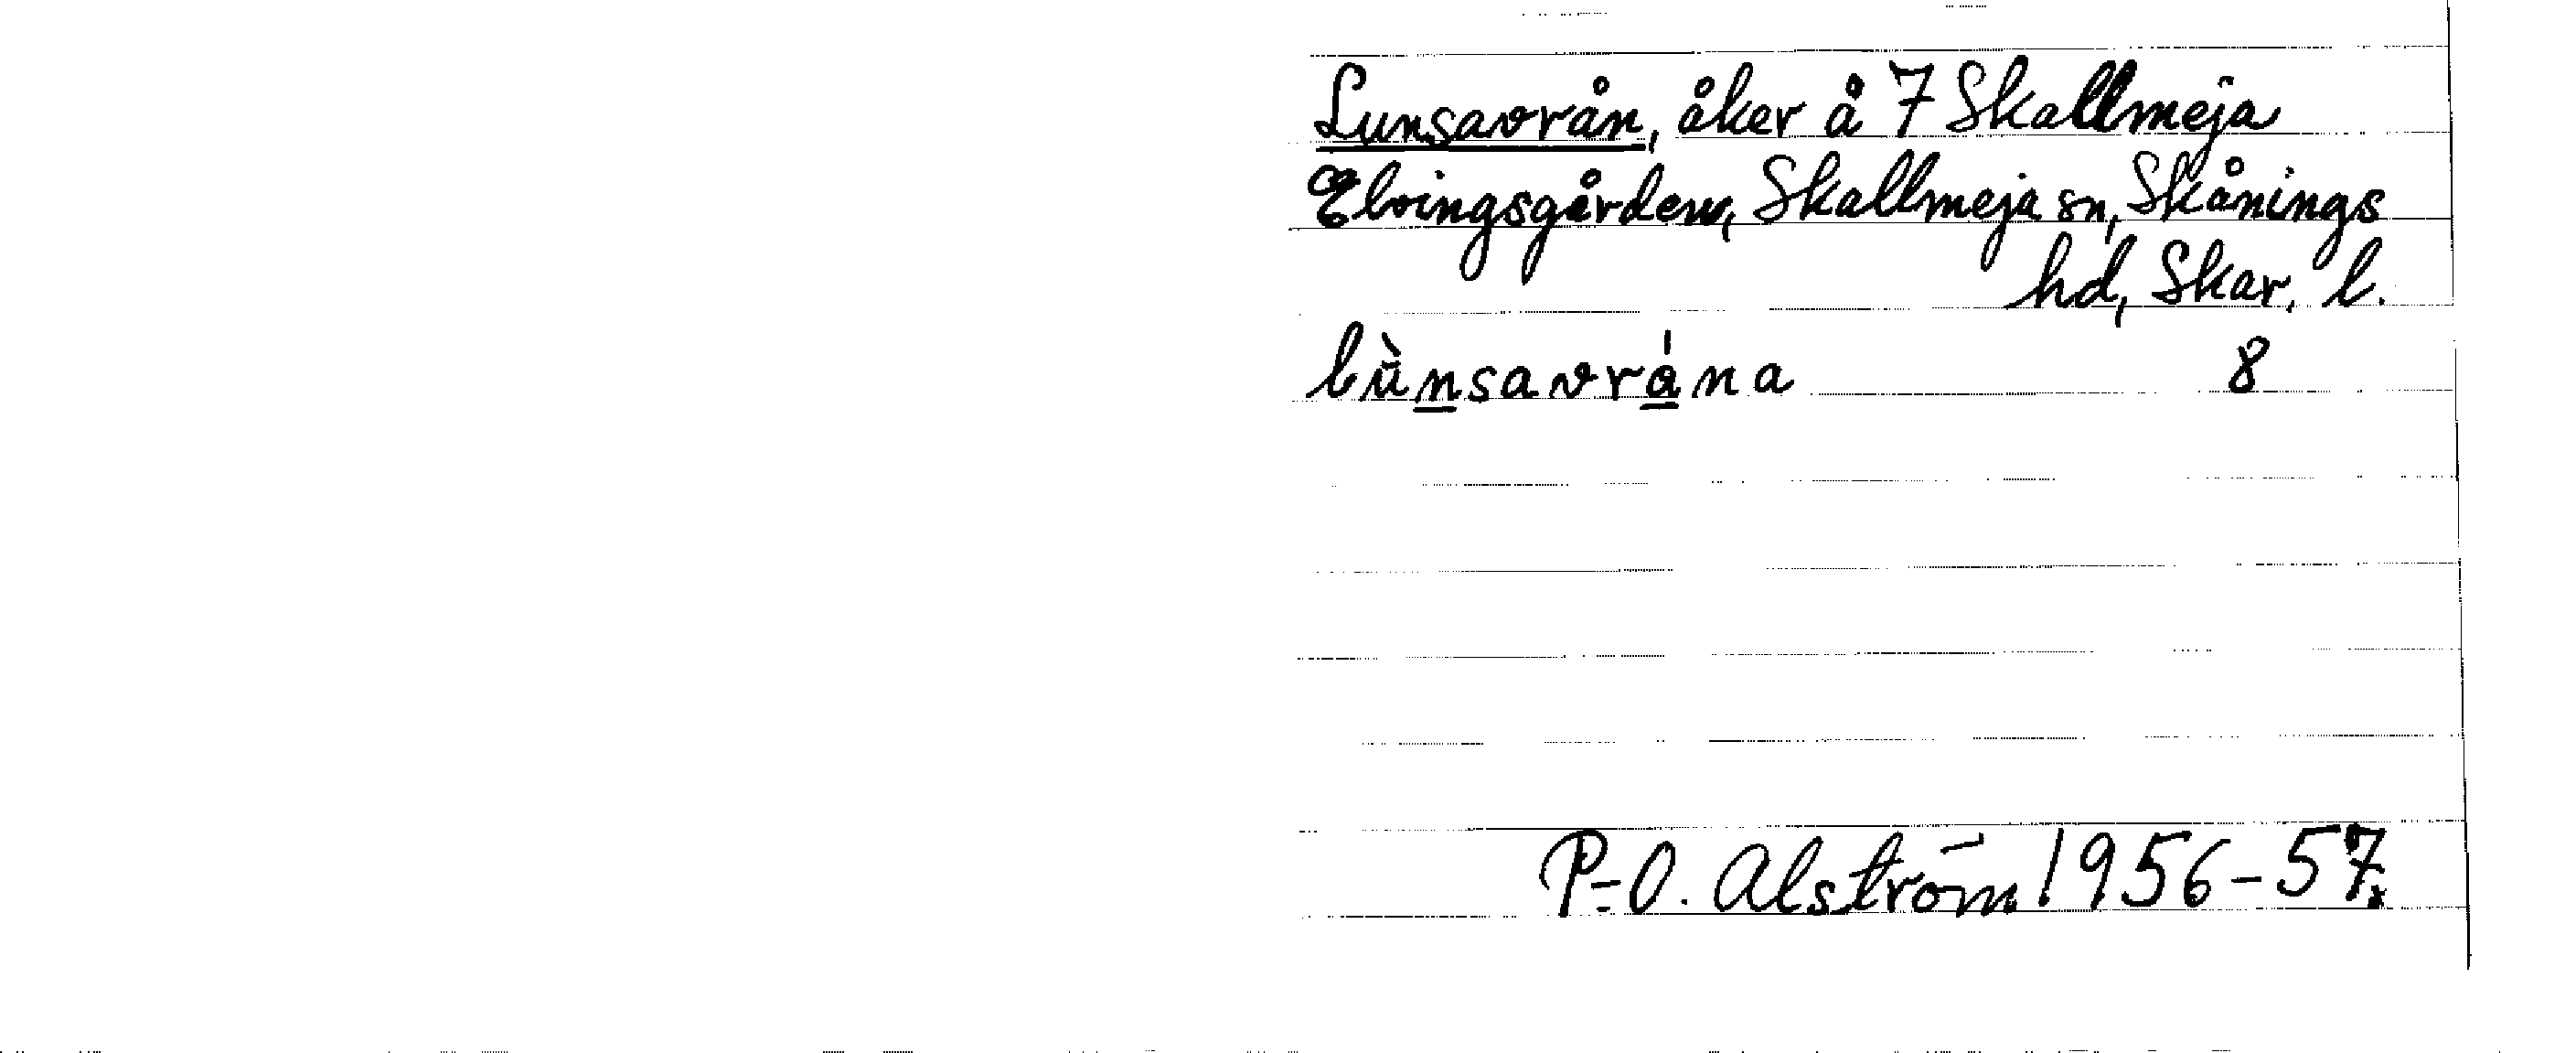 Lunsavrån, åker å 7 Skallmeja
Elvingsgården, Skallmeja sn, Skånings
hd, Skar. l.
lùnsavrána 8
P-O. Alström 1956-57.